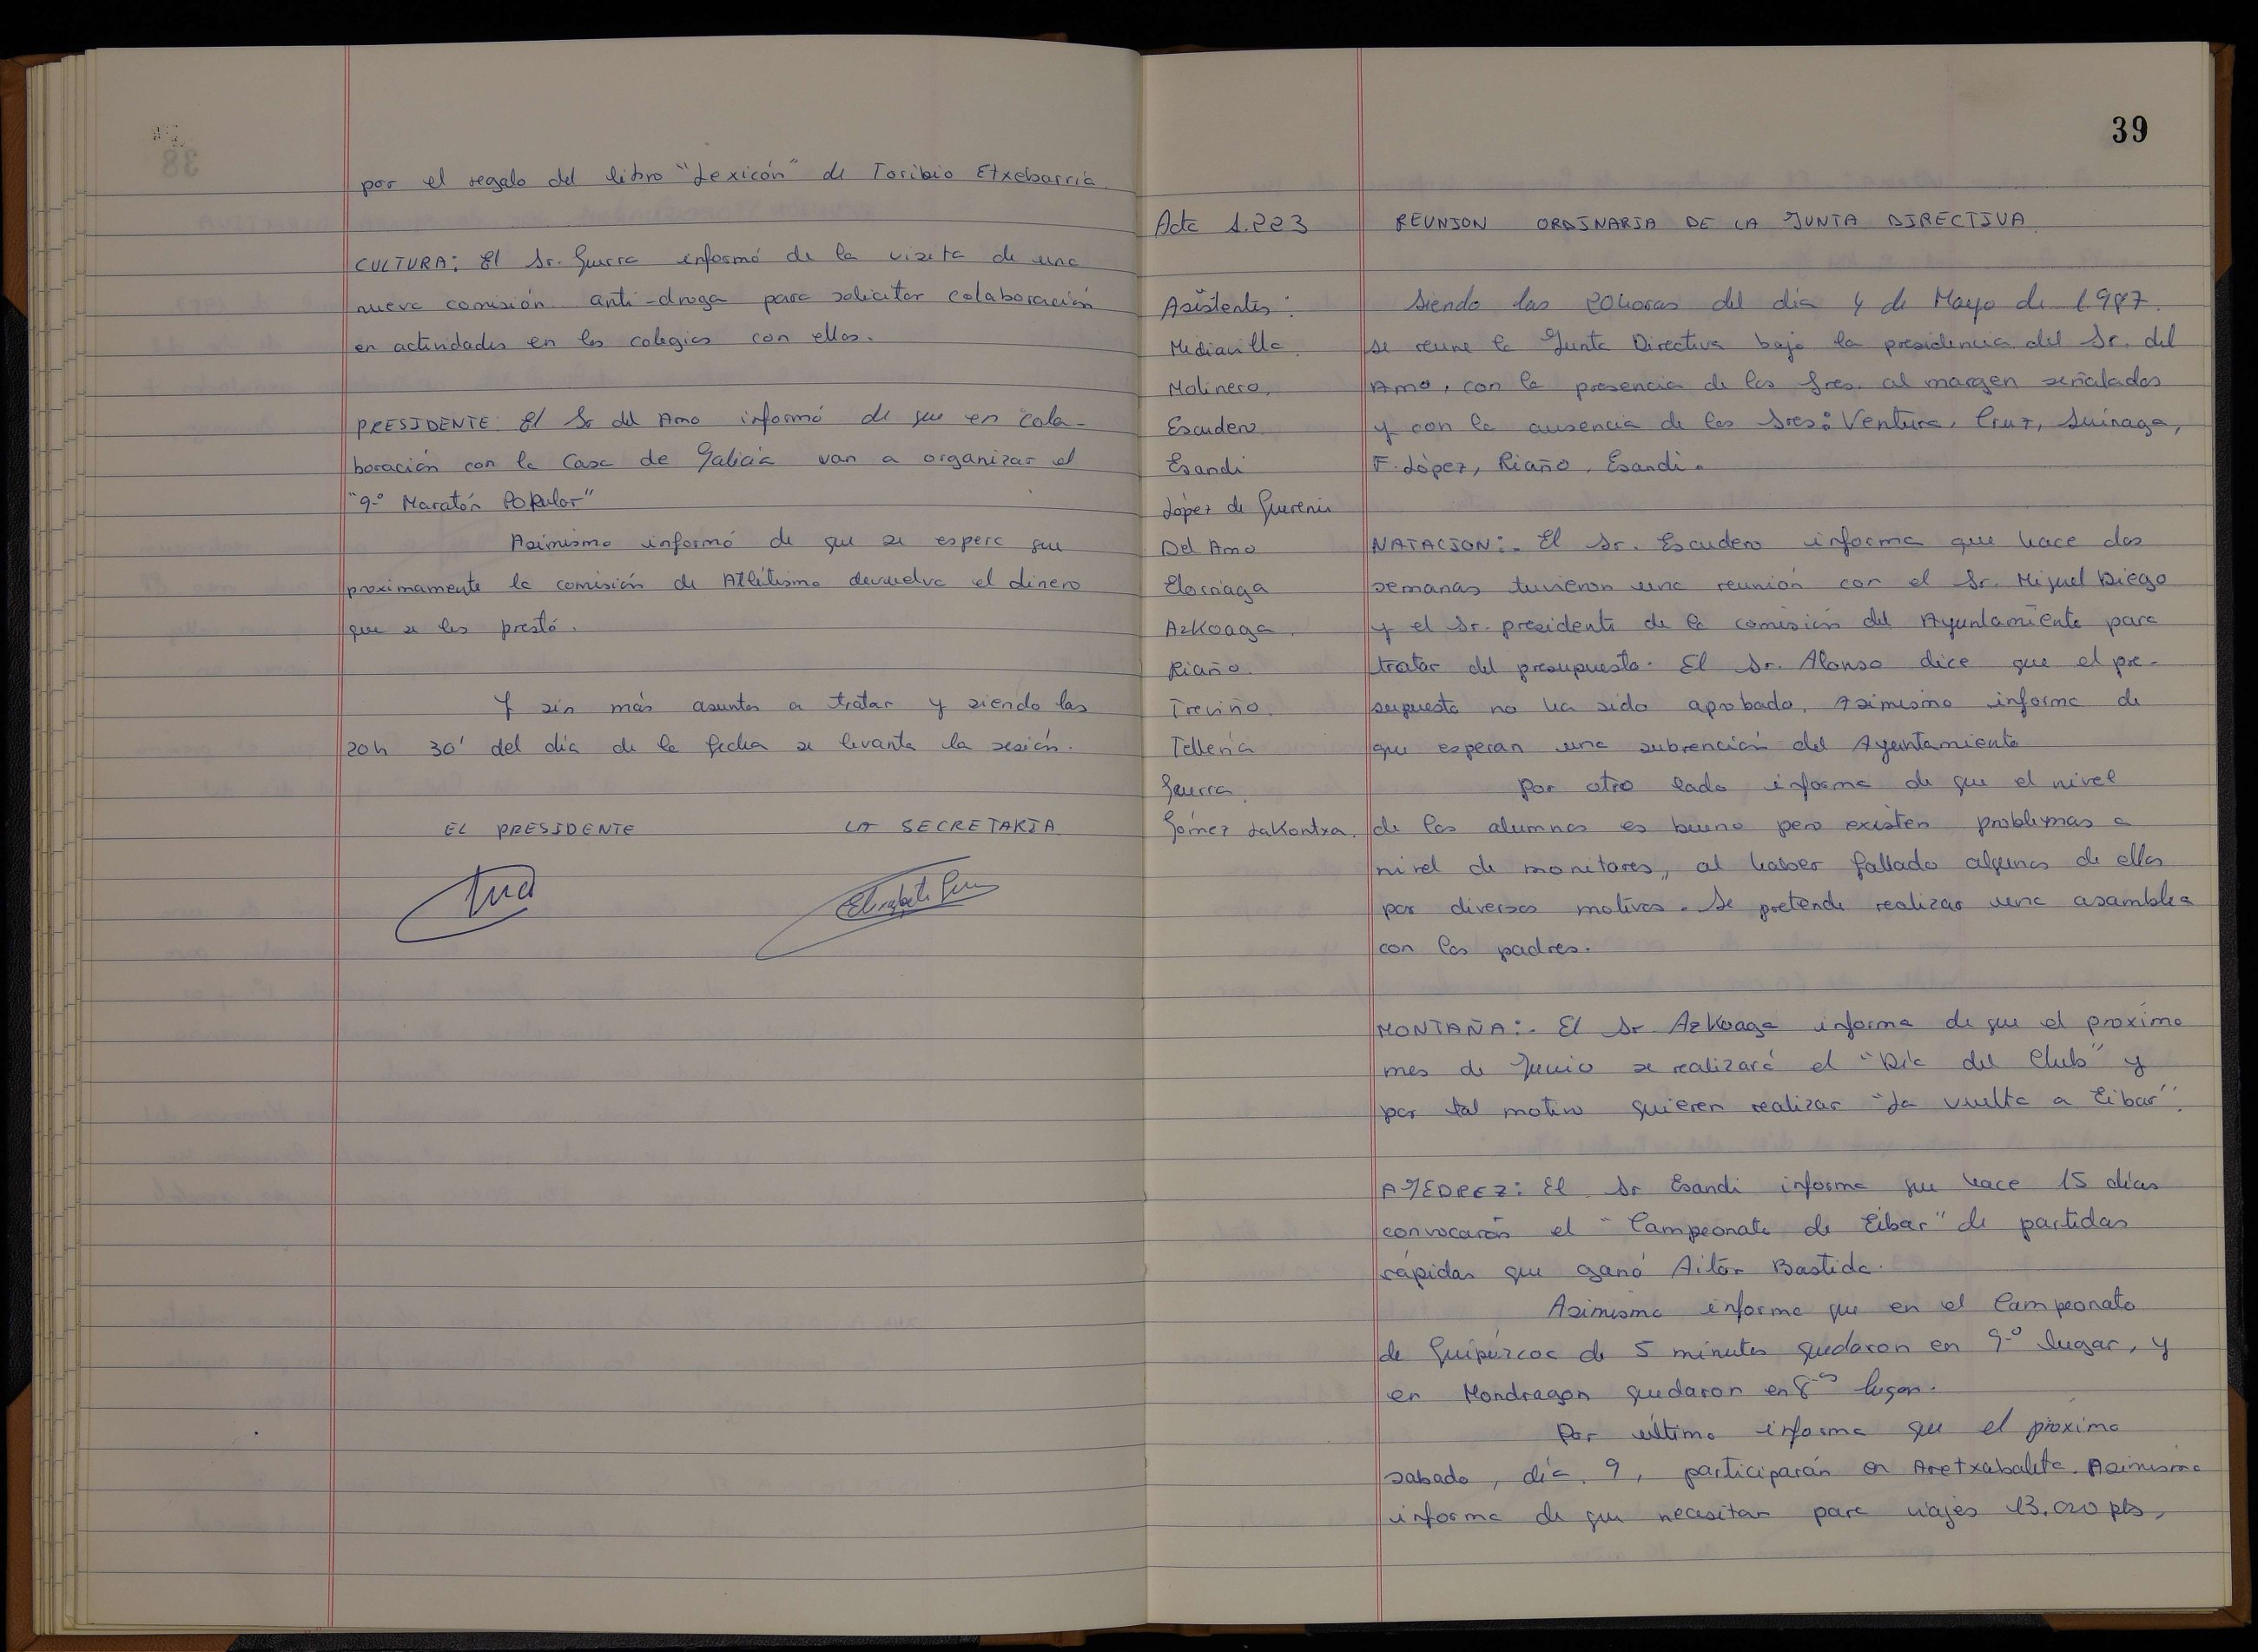 por el regalo del libro "Lexicón" de Toribio Etxebarria
CULTURA: El Sr. Guerra informó de la visita de una
nueva comisión anti-droga para solicitar colaboración
en actividades en los colegios con ellos.
PRESIDENTE: El Sr del Amo informó de que en cola-
boración con la Casa de Galicia van a organizar el
"9º Maratón Popular"
Asimismo informó de que se espera que
proximamente la comisión de Atlétismo devuelva el dinero
que se les prestó.
Y sin más asuntos a tratar y siendo las
20h 30' del día de la fecha se levanta la sesión.
EL PRESIDENTE LA SECRETARIA
39
Acta 1.223
Asistentes:
Mediavilla
Molinero,
Escudero
Esandi
López de Guereñu
Del Amo
Elorriaga
Azkoaga.
Riaño.
Treviño.
Tellería
Guerra.
Gómez Lakontxa.
REUNION ORDINARIA DE LA JUNTA DIRECTIVA
Siendo las 20 horas del día 4 de Mayo de 1.987.
se reune la Junta Directiva bajo la presidencia del Sr. del
Amo, con la presencia de los Sres. al margen señalados
y con la ausencia de los Sres: Ventura, Cruz, Suinaga,
F. López, Riaño, Esandi.
NATACION:. El Sr. Escudero informa que hace dos
semanas tuvieron una reunión con el Sr. Miguel Diego
y el Sr. presidente de la comisión del Ayuntamiento para
tratar del presupuesto. El Sr. Alonso dice que el pre-
supuesto no ha sido aprobado, Asimismo informa de
que esperan una subvención del Ayuntamiento
Por otro lado informa de que el nivel
de los alumnos es bueno pero existen problemas a
nivel de monitores, al haber fallado algunos de ellos
por diversos motivos. Se pretende realizar una asamblea
con los padres.
MONTAÑA:. El Sr Azkoaga informa de que el proximo
mes de Junio se realizará el "Día del Club" y
por tal motivo quieren realizar "La vuelta a Eibar".
AJEDREZ: El Sr Esandi informa que hace 15 días
convocarón el "Campeonato de Eibar" de partidas
rápidas que ganó Aitor Bastida.
Asimismo informa que en el Campeonato
de Guipúzcoa de 5 minutos quedaron en 9º lugar, y
en Mondragon quedaron en 8º lugar.
Por último informa que el próximo
sabado, día 9, participarán en Aretxabaleta. Asimismo
informa de que necesitan para viajes 13.020 pts,